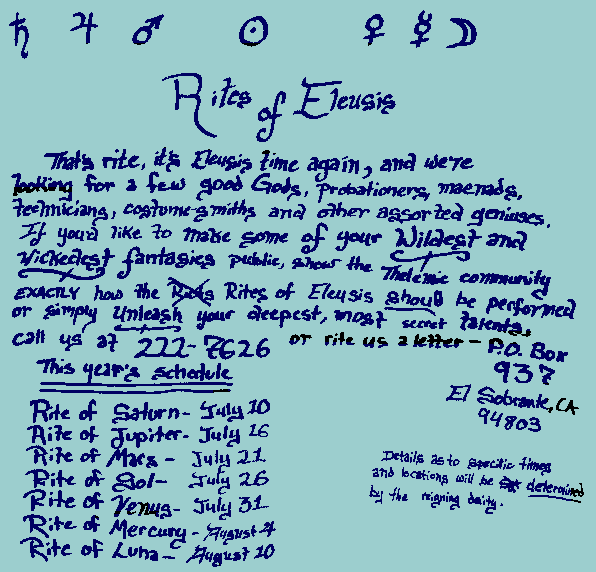 ♄ ♃ ♂ ☉ ♀ ☿ ☽
Rites of Eleusis
That's rite, it's Eleusis time again, and we're
looking for a few good Gods, probationers, maenads,
technicians, costume-smiths and other assorted geniuses.
If you'd like to make some of your Wildest and
Wickedest fantasies public, show the Thelemic community
EXACTLY how the Rites of Eleusis should be performed
or simply Unleash your deepest, most secret talents,
call us at 222-7626 or rite us a letter - P.O. Box
937
El Sobrante, CA
94803
This year's schedule
Rite of Saturn - July 10
Rite of Jupiter - July 16
Rite of Mars - July 21
Rite of Sol - July 26
Rite of Venus - July 31
Rite of Mercury - August 4
Rite of Luna - August 10
Details as to specific times
and locations will be determined
by the reigning deity.